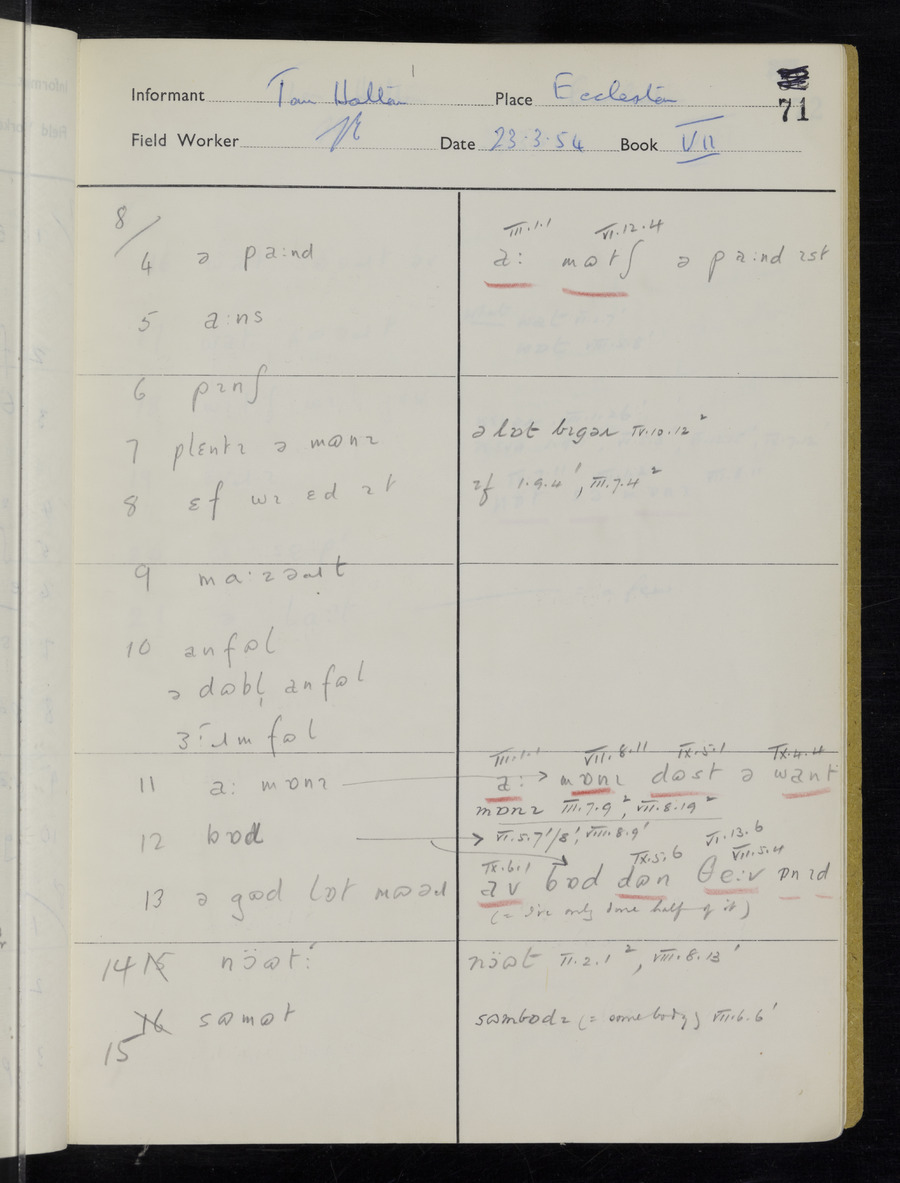 71
Informant Tom Hatton Place Eccleston
Field Worker Date 23.3.54 Book VII
8/
4 ə pa:ɪnd
III.1.1 VI.12.4
a: mʊtʃ ə pa:ɪnd ɪst
5 a:ns
6 pɪnʃ
7 plɛntɪ ə mʊnɪ
ə lɒt bɪgəɹ IV.10.12²
8 ɛf wɪ ɛd ɪt
ɪf 1.9.4¹, III.7.4²
9
10 anfʊl
ə dʊbl̩ anfʊl
fʊl
III.1.1 VII.8.11 IX.5.1 IX.4.4
11 a: mɒnɪ
a: > mɒnɪ dʊst ə want
mɒnɪ III.7.9², VII.8.19²
12 bɒd
> VI.5.7¹/8¹, VIII.8.9¹
IX.6.1 IX.5.6 VI.13.6 VII.5.4
av bɒd dʊn ɵe:v ɒn ɪd
13 ə gʊd lɒt mʊəɹ
(= I've only done half of it)
14 15 nɔ̈ʊt:¹
nɔ̈ʊt II.2.1², VIII.8.13¹
16 sʊmʊt
15
sʊmbɒdɪ (= somebody) VII.6.6¹